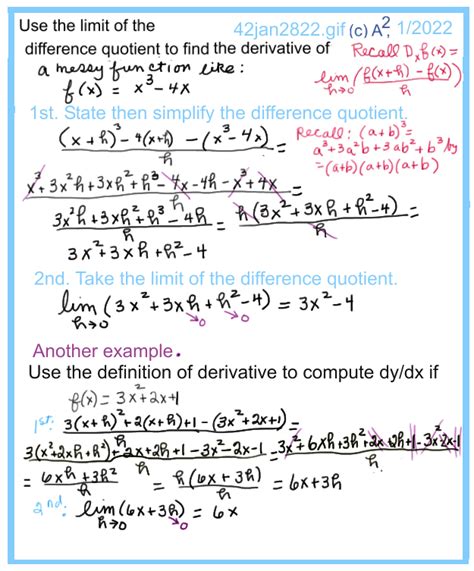 Use the limit of the 42jan2822.gif (c) A², 1/2022
difference quotient to find the derivative of Recall Dₓf(x) =
a messy function like: lim h→0 (f(x+h) - f(x))/h
f(x) = x³ - 4x
1st. State then simplify the difference quotient.
((x + h)³ - 4(x+h) - (x³ - 4x))/h = Recall: (a+b)³ =
a³ + 3a²b + 3ab² + b³ by
= (a+b)(a+b)(a+b)
(x³ + 3x²h + 3xh² + h³ - 4x - 4h - x³ + 4x)/h =
(3x²h + 3xh² + h³ - 4h)/h = h(3x² + 3xh + h² - 4)/h =
3x² + 3xh + h² - 4
2nd. Take the limit of the difference quotient.
lim h→0 (3x² + 3xh + h² - 4) = 3x² - 4
→0 →0
Another example.
Use the definition of derivative to compute dy/dx if
f(x) = 3x² + 2x + 1
1st: 3(x+h)² + 2(x+h) + 1 - (3x² + 2x + 1) =
h
3(x² + 2xh + h²) + 2x + 2h + 1 - 3x² - 2x - 1 = 3x² + 6xh + 3h² + 2x + 2h + 1 - 3x² - 2x - 1
h h
= (6xh + 3h²)/h = h(6x + 3h)/h = 6x + 3h
2nd: lim h→0 (6x + 3h) = 6x
→0